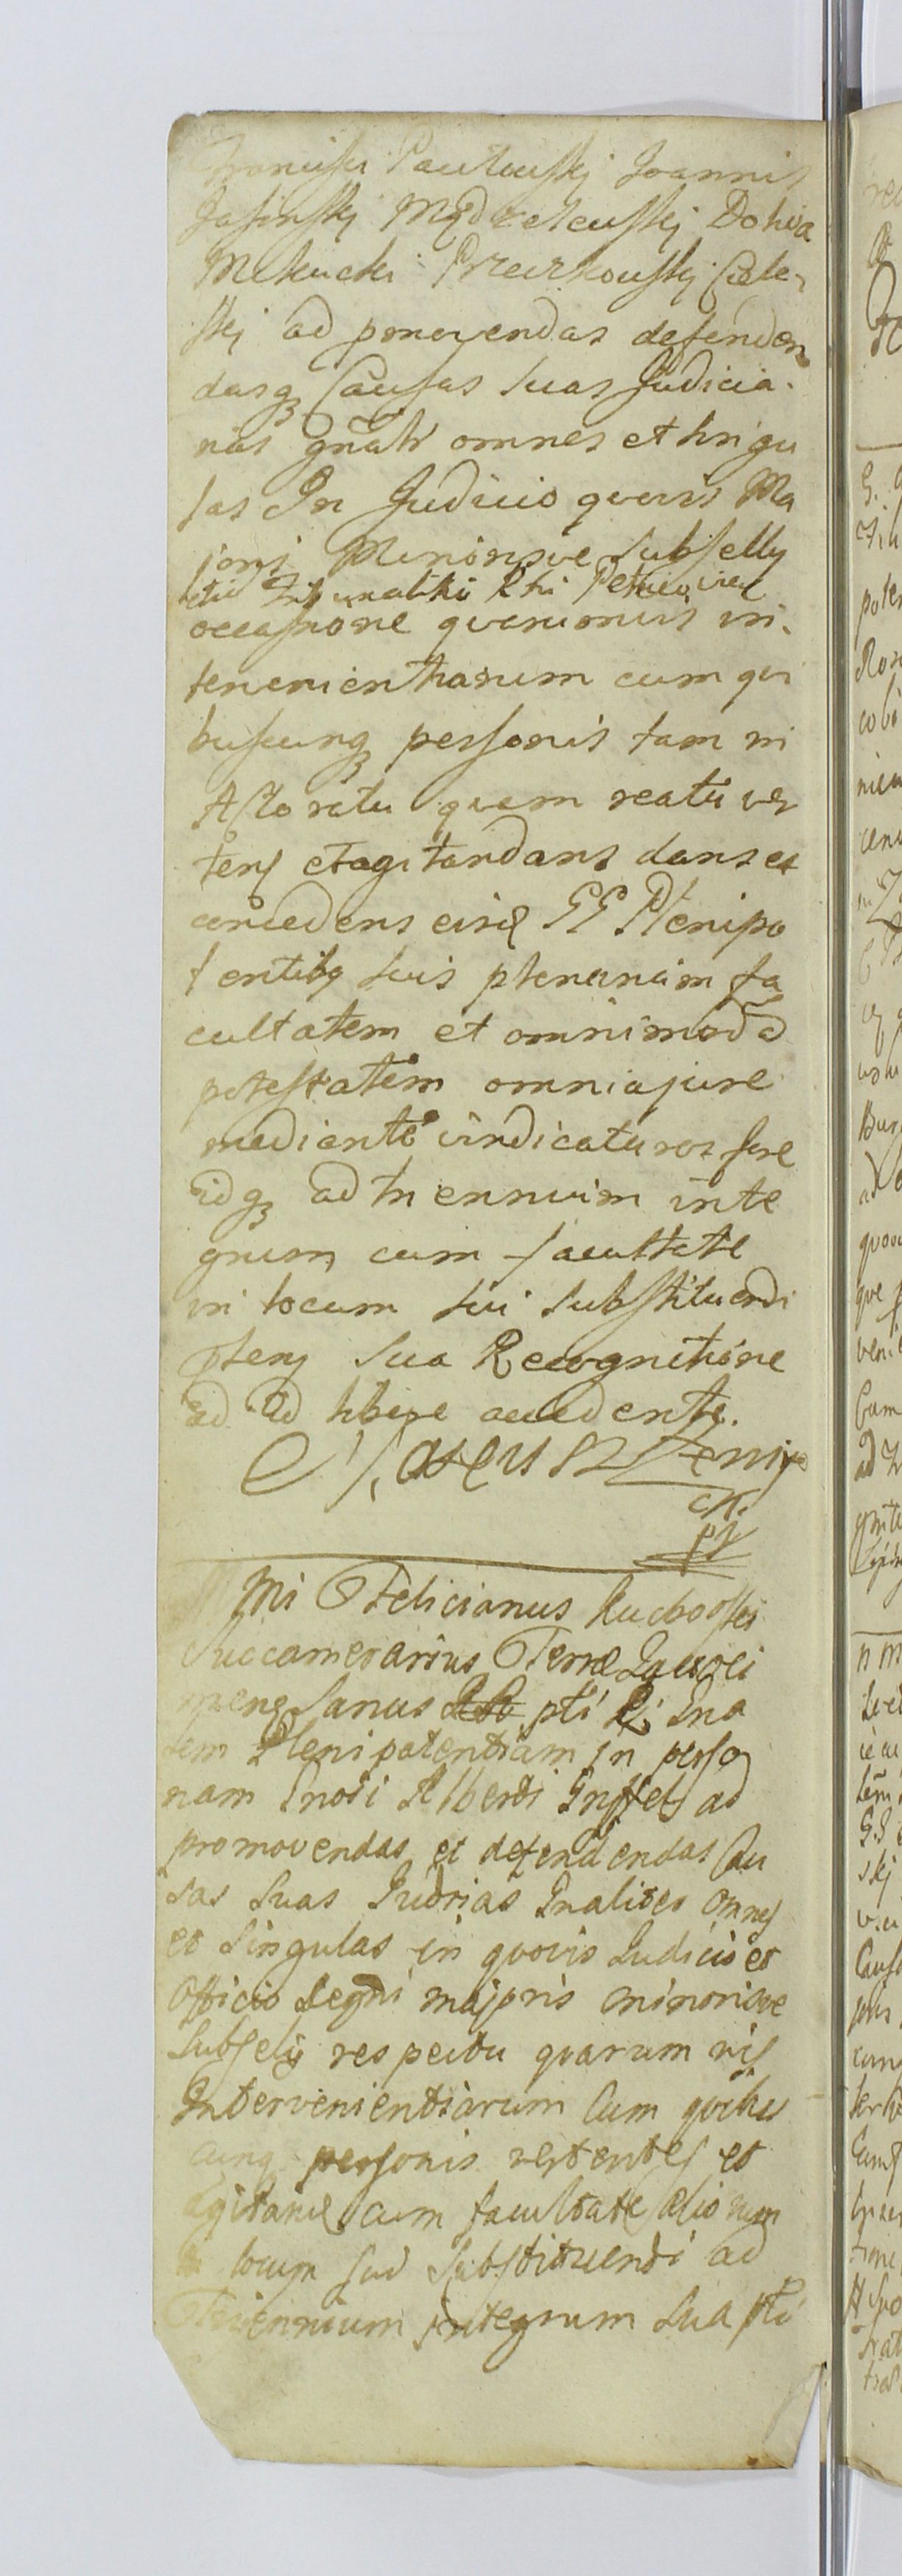 Francisci Pawłowskj Joannis
Jasinskj Mędrelewskj Dobiva
Mikucki Przerkowskj Ciele-
skj ad promovendas defenden
dasq Causas suas Judicia-
rias gnalr omnes et singu
las In Judicio quovis Ma
joris Minorisve Subselly
occasione quarumvis in-
tervenientiarum cum qui
buscunq personis tam in
Actoratu quam reatu ver
tens et agitandans dans et
concedens eisd GG Plenipo
tentibq suis plenariam fa
cultatem et omnimoda
potestatem omnia jure
mediante vindicaturos fore
idq ad triennium inte
grum cum facultate
in locum sui substituendi
pteny sua Recognitione
ad id libere accedente.
Mi Felicianus
Succamerarius Terræ
pti Ri Gna
lem Plenipotentiam in perso
nam Gnosi Alberti Gryffel ad
promovendas et defendendas Cau
sas suas Judrias Gnaliter omnes
et singulas in quovis Judicio et
Officio Regni majoris minorisve
Subselij respectu quarum vis
Intervenientiarum Cum quibus
cunq personis vertentes et
Agitand cum facultate aliorum
locum sui substituendi ad
Triennium Integrum sua pti